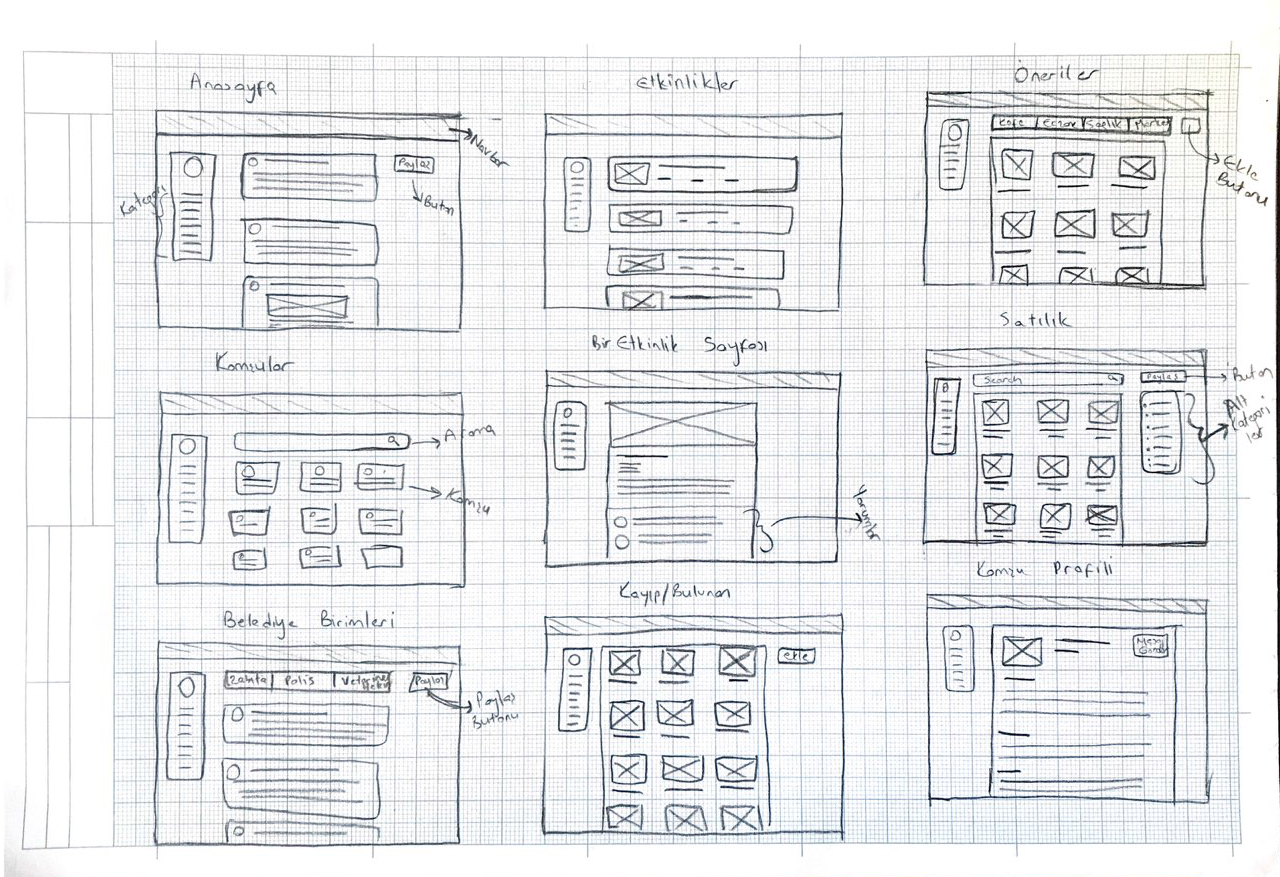 Anasayfa
Navbar
Kategori
Paylaş
Buton
Etkinlikler
Öneriler
Kafe
Eczane
Sağlık
Market
Ekle
Butonu
Komşular
Arama
Komşu
Bir Etkinlik Sayfası
Yorumlar
Satılık
Search
Paylaş
Buton
Alt
Kategori
ler
Belediye Birimleri
Zabıta
Polis
Veteriner
Paylaş
Paylaş
Butonu
Kayıp/Bulunan
ekle
Komşu Profili
Mesaj
Gönder